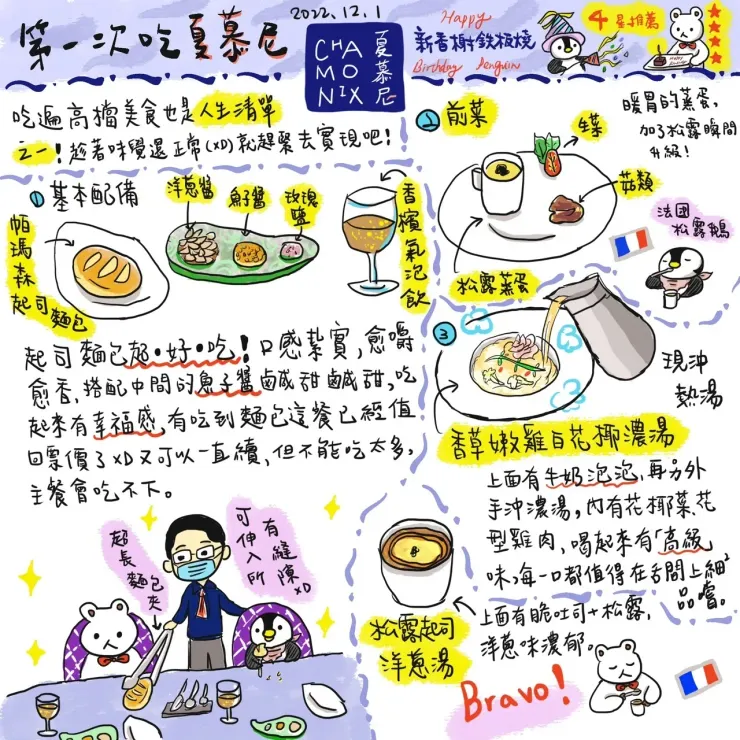 第一次吃夏慕尼
2022.12.1
CHA
MO
NIX
夏慕尼
Happy
新香榭鉄板燒
Birthday Penguin
4星推薦
吃遍高檔美食也是人生清單
之一！趁著味覺還正常(xD)就趕緊去實現吧！
①基本配備
洋蔥醬
魚子醬
玫瑰鹽
帕瑪森起司麵包
香檳氣泡飲
起司麵包超•好•吃！口感紮實，愈嚼
愈香，搭配中間的魚子醬鹹甜鹹甜，吃
起來有幸福感，有吃到麵包這餐已經值
回票價了xD又可以一直續，但不能吃太多，
主餐會吃不下。
超長麵包夾
有縫隙
可伸入所
xD
②前菜
生菜
菇類
松露蒸蛋
暖胃的蒸蛋，
加了松露瞬間
升級！
法國松露鴨
③
現沖
熱湯
香草嫩雞白花椰濃湯
上面有牛奶泡泡，再另外
手沖濃湯，內有花椰菜、花
型雞肉，喝起來有「高級
味，每一口都值得在舌間上細²
品嚐。
松露起司
洋蔥湯
上面有脆吐司+松露，
洋蔥味濃郁。
Bravo！